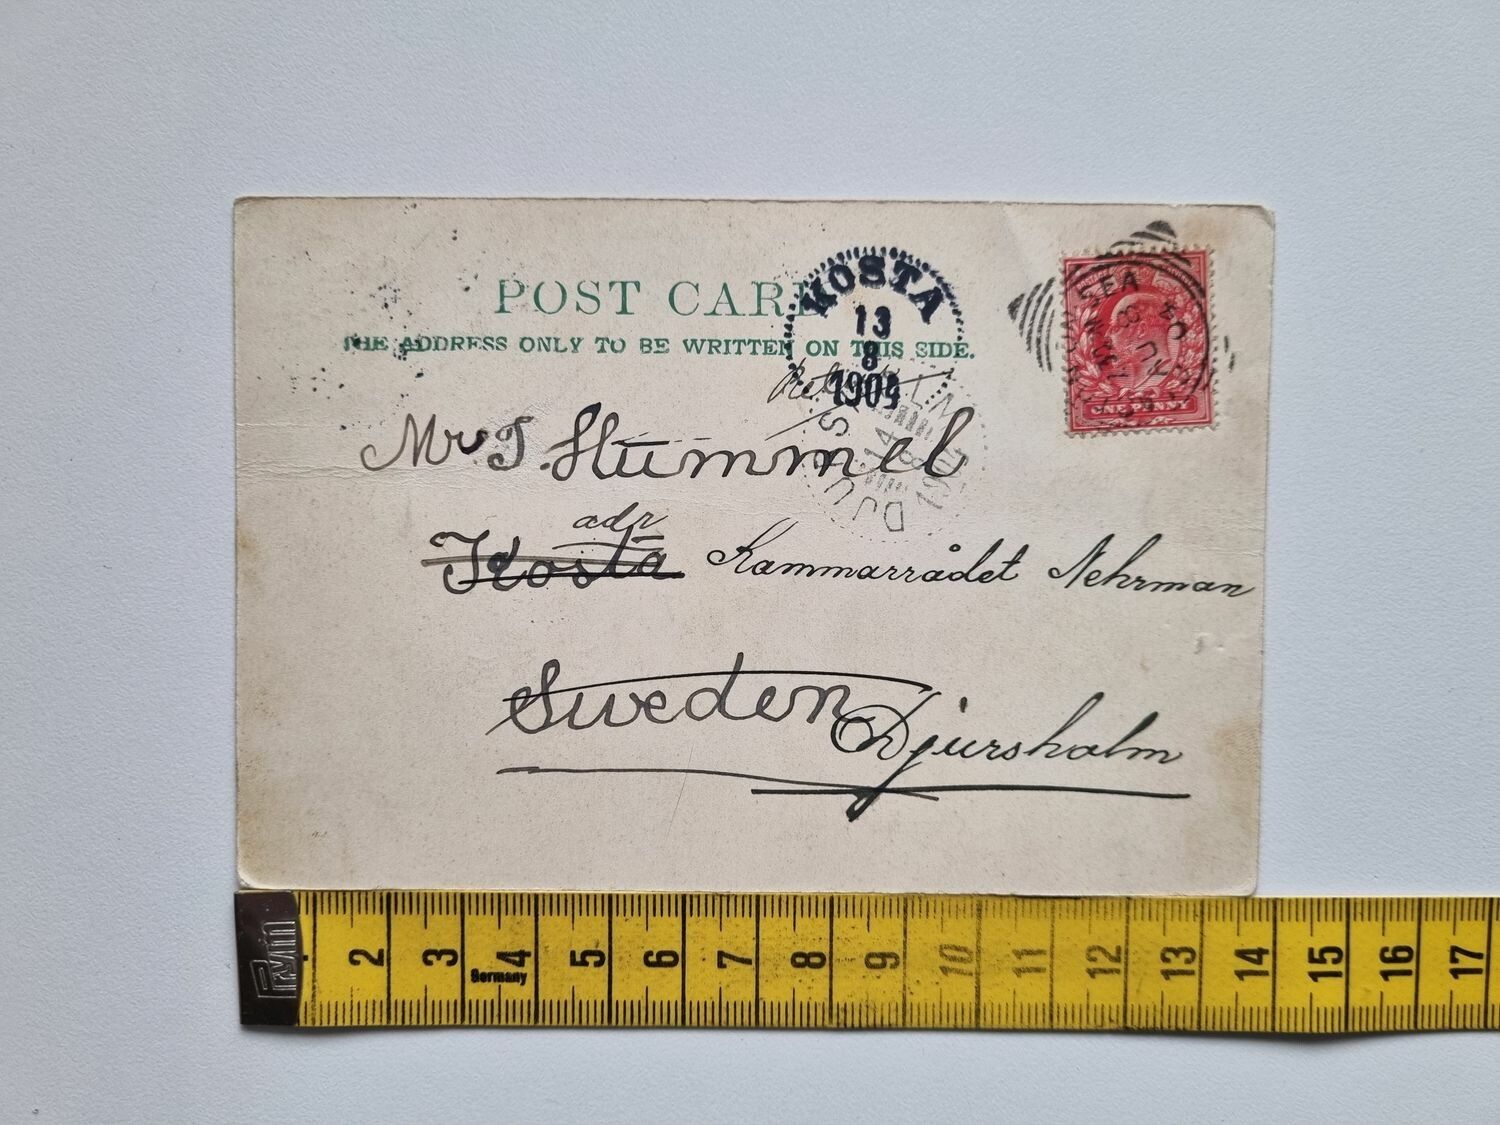 POST CARD
THE ADDRESS ONLY TO BE WRITTEN ON THIS SIDE.
KOSTA
13
8
1904
SEA
ONE PENNY
DJURSHOLM
14
8
1904
Mr J. Hummel
adr
Kosta Kammarrådet Nehrman
Sweden
Djursholm
prym
2 3 4 5 6 7 8 9 10 11 12 13 14 15 16 17
Germany